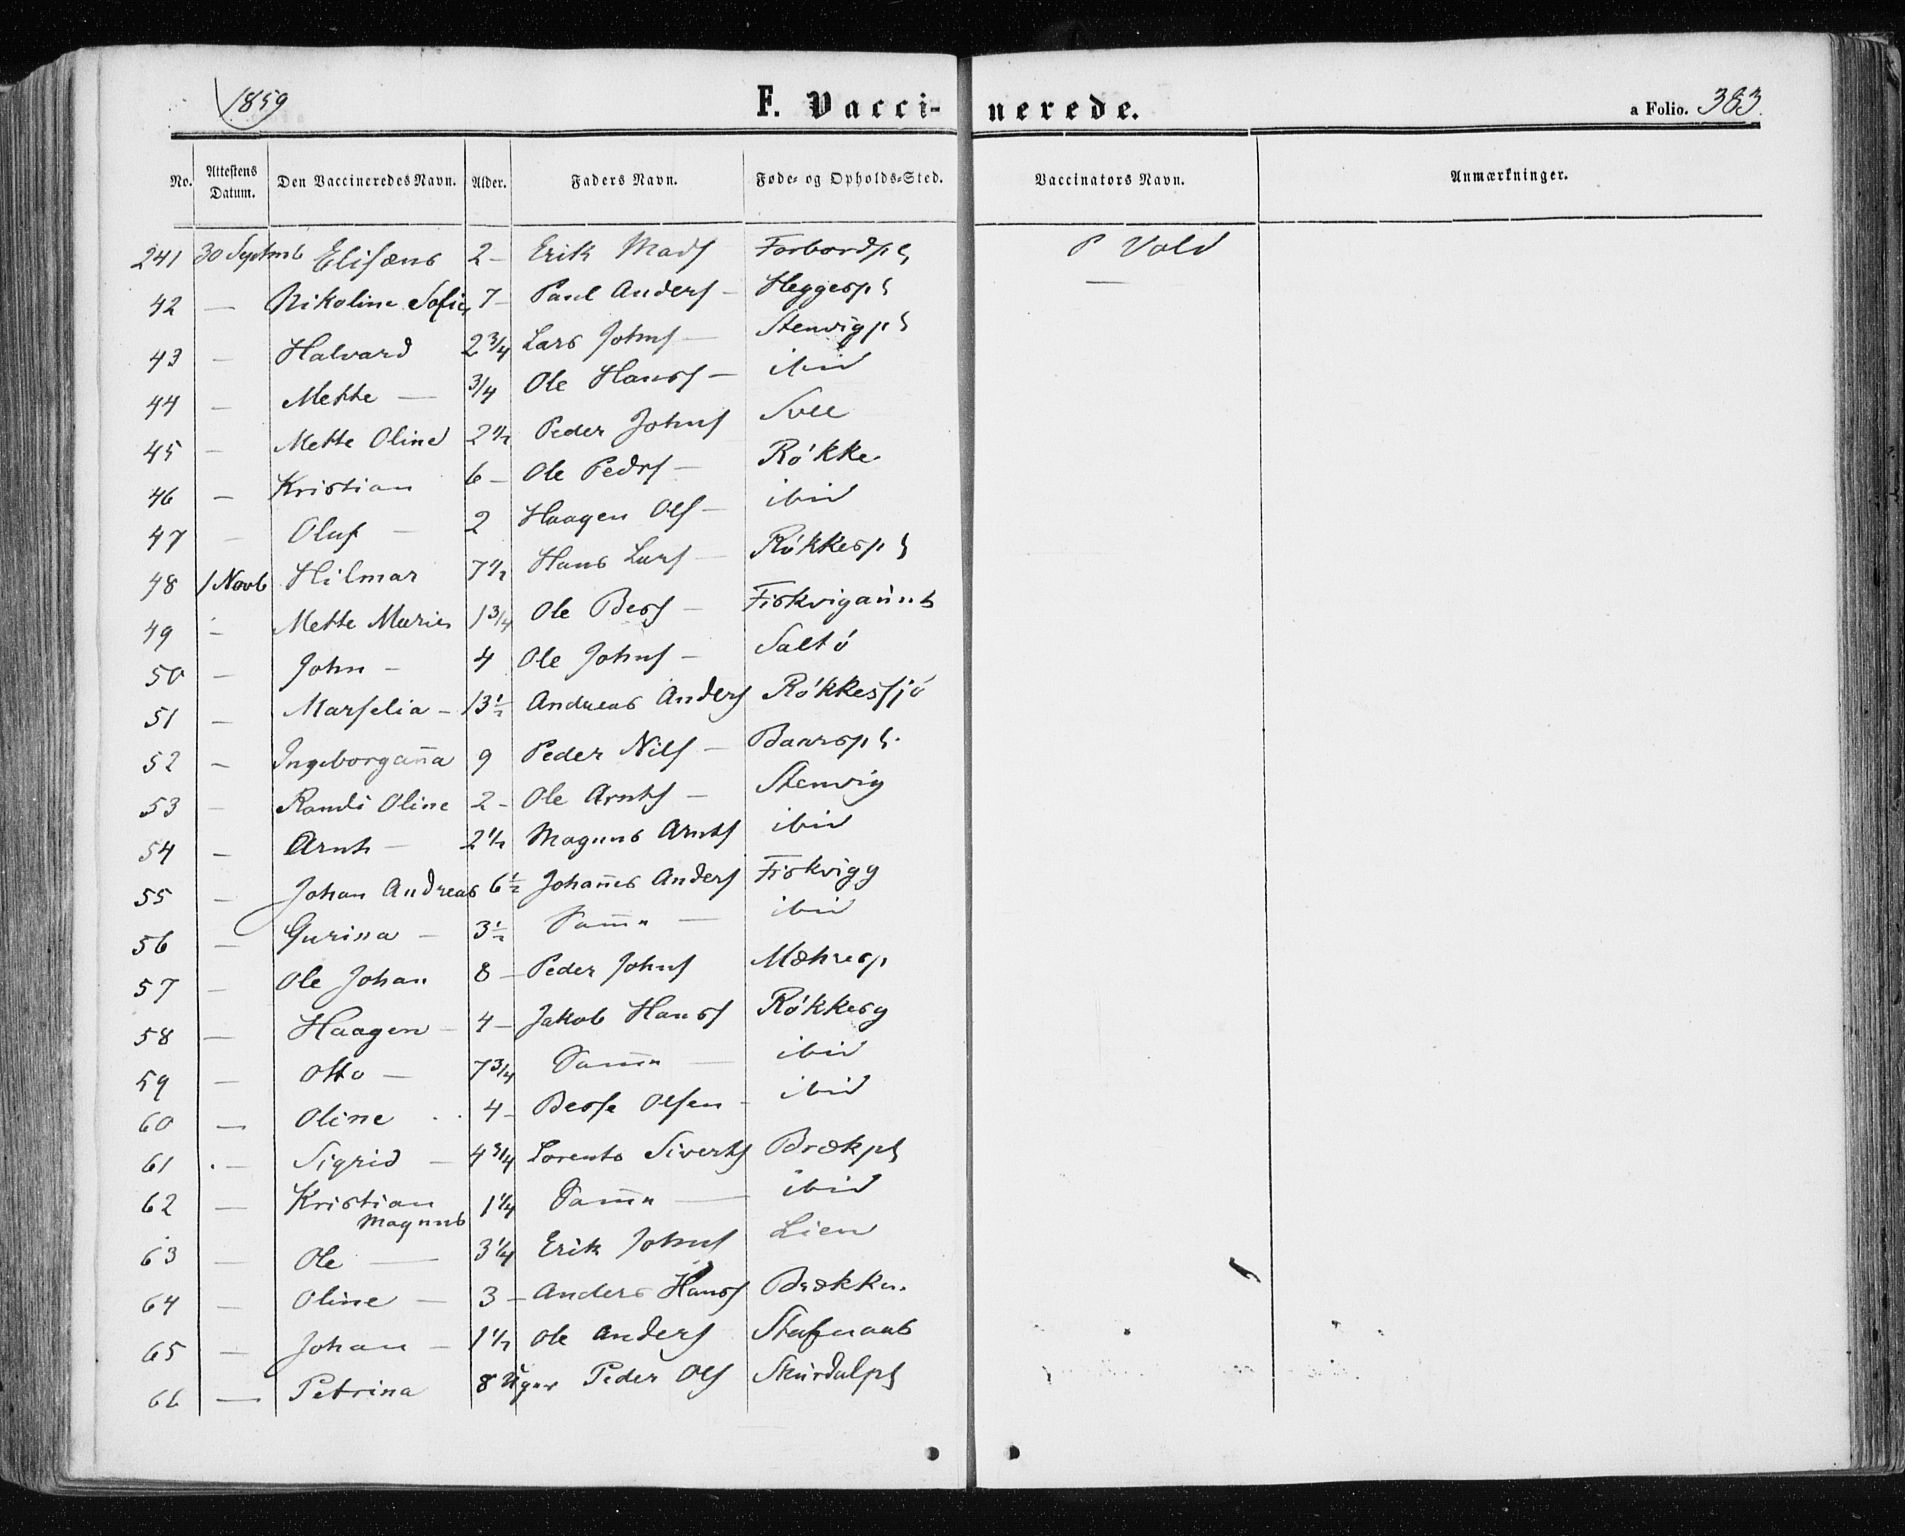 1859 F. Vaccinerede. a Folio. 383.
No. Attestens Datum. Den Vaccineredes Navn. Alder. Faders Navn. Føde- og Opholds-Sted. Vaccinators Navn. Anmærkninger.
241 30 Septmb Elisæus 2 – Erik Mads Forbordpl P Vold
42 — Nikoline Sofie 7 – Paul Anders – Heggespl —
43 – Halvard 2 3/4 Lars Johns – Stenvigpl
44 – Mette — 3/4 Ole Hans – ibid
45 – Mette Oline 2 1/2 Peder Johns Svee
46 – Kristian 6 – Ole Peders – Røkke
47 – Oluf – 2 Haagen Ols – ibid
48 1 Novb Hilmar 7 1/2 Hans Lars – Røkkespl
49 – Mette Marie 1 3/4 Ole Bers – Fiskvigaunt
50 – John – 4 Ole Johns – Saltø
51 – Marselia – 13 1/2 Andreas Anders Røkkessjø
52 – Ingeborgan̄a 9 Peder Nils – Baarspl.
53 – Randi Oline 2 – Ole Arnts – Stenvig
54 – Arnt – 2 1/2 Magnus Arnts ibid
55 – Johan Andreas 6 1/2 Johan̄es Anders Fiskvigg
56 — Gurina – 3 1/2 Sam̄e — ibid
57 – Ole Johan 8 – Peder Johns Mæhresp
58 — Haagen – 4 – Jakob Hans Røkkesg
59 – Otto – 7 3/4 Sam̄e — ibid
60 — Oline 4 – Berse Olsen – ibid
61 – Sigrid – 4 3/4 Lorents Siverts Brækpl
62 — Kristian Magnus 1 1/4 Sam̄e — ibid
63 — Ole — 3 1/4 Erik Johns Lien
64 – Oline – 3 – Anders Hans Brække.
65 – Johan – 1 1/2 Ole Anders
66 — Petrina 8 Uger Peder Ols Skurdalpl